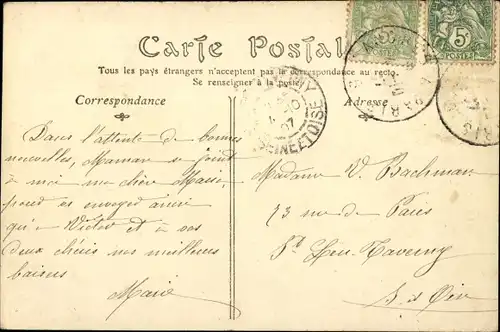 Carte Postale
Tous les pays étrangers n'acceptent pas la correspondance au recto.
Se renseigner à la poste.
Correspondance
Adresse
5c
POSTES
SEINE ET OISE
10
07
PARIS
Dans l'attente de bonnes
nouvelles, Maman se joint
à moi ma chère Marie,
pour envoyer ainsi
qu'à Victor et à vos
deux chéris nos meilleurs
baisers
Marie
Madame V. Bachman
23 rue de Paris
St Leu Taverny
S. et Oise